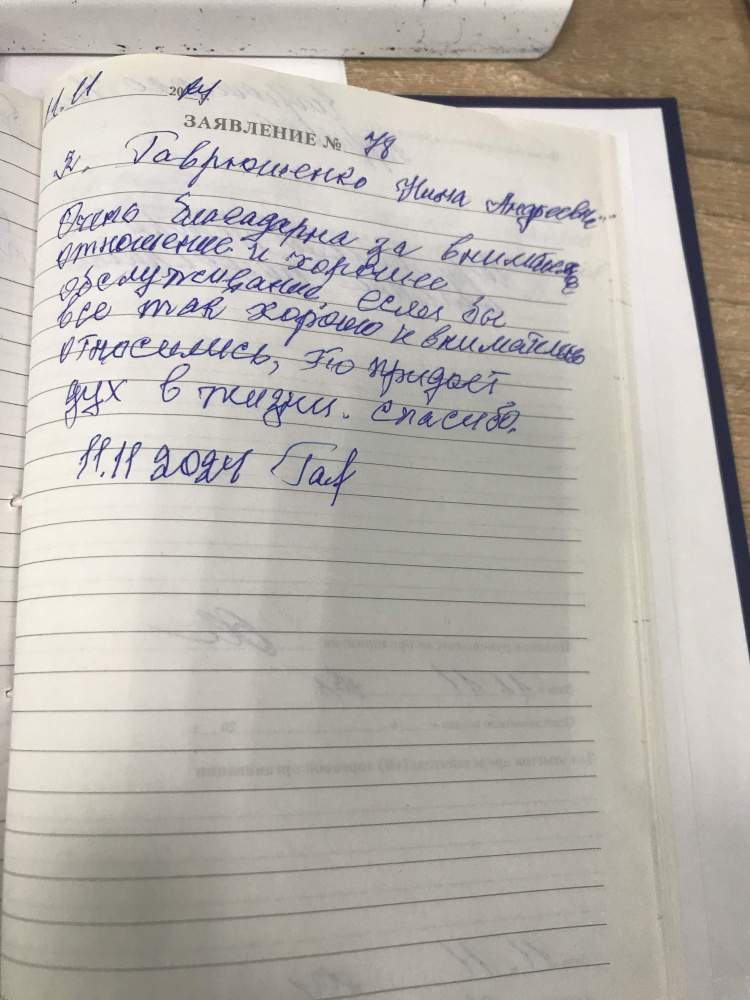 11.11 2024
ЗАЯВЛЕНИЕ № 78
Я, Гаврюшенко Нина Андреевн
Очень благадарна за внимание
отношение и хорошее
обслуживание если бы
все так хорошо и внимательно
относились, это придает
дух в жизни. Спасибо.
11.11 2024 Гав